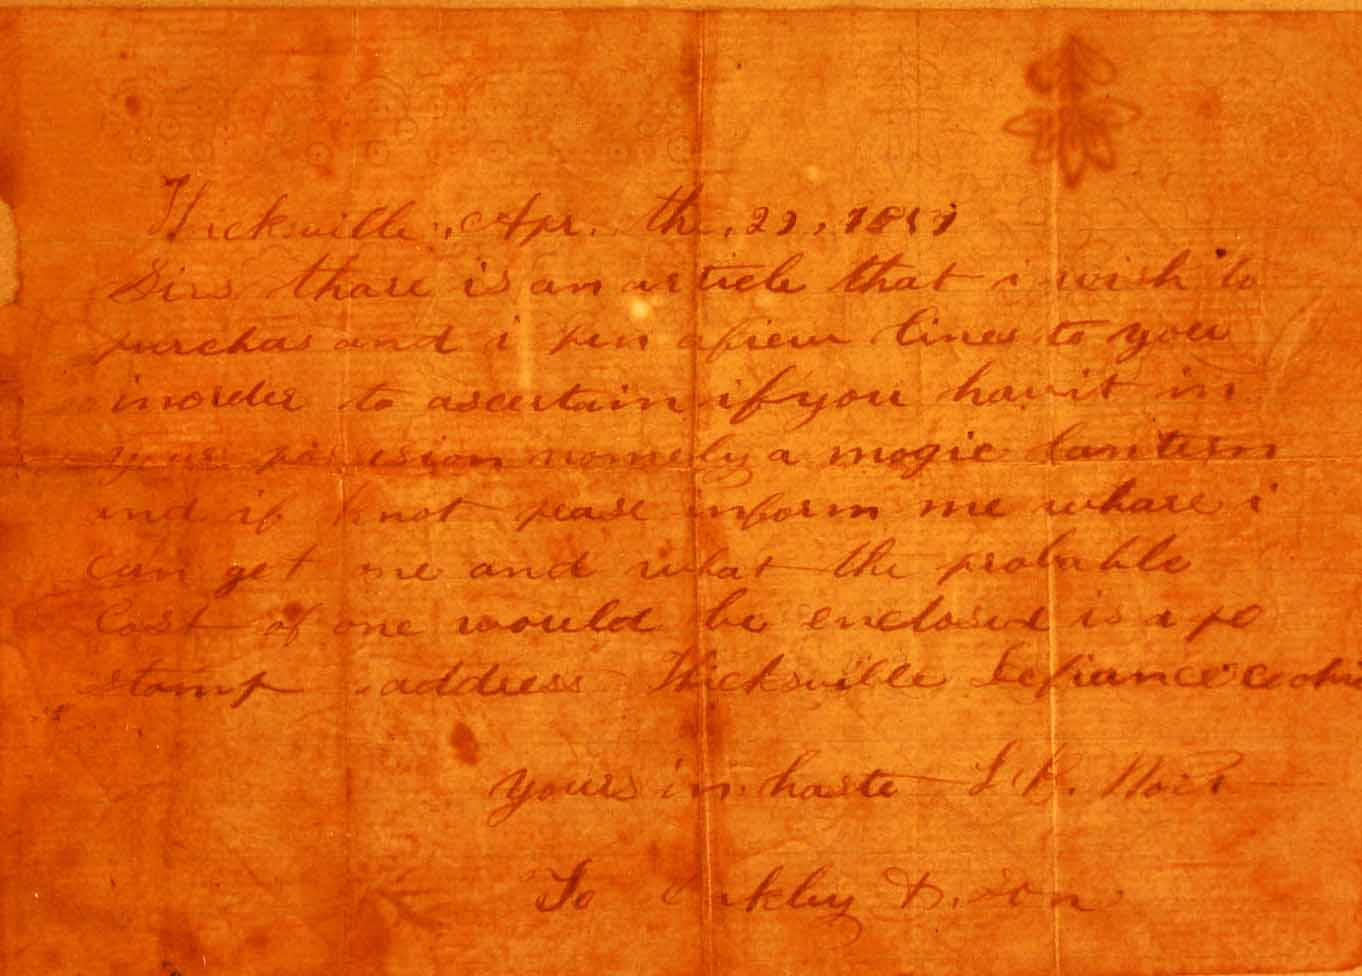 Hicksville, Apr. the, 22, 18
Sirs thare is an article that i wish to
purchas and i pen afiew lines to you
inorder to ascertain ifyou havit in
your namely a magic lantern
and if knot pease inform me whare i
can get one and what the probable
Cost of one would be enclosed is a po
stamp address Hicksville Defiance co ohio
yours in haste
To